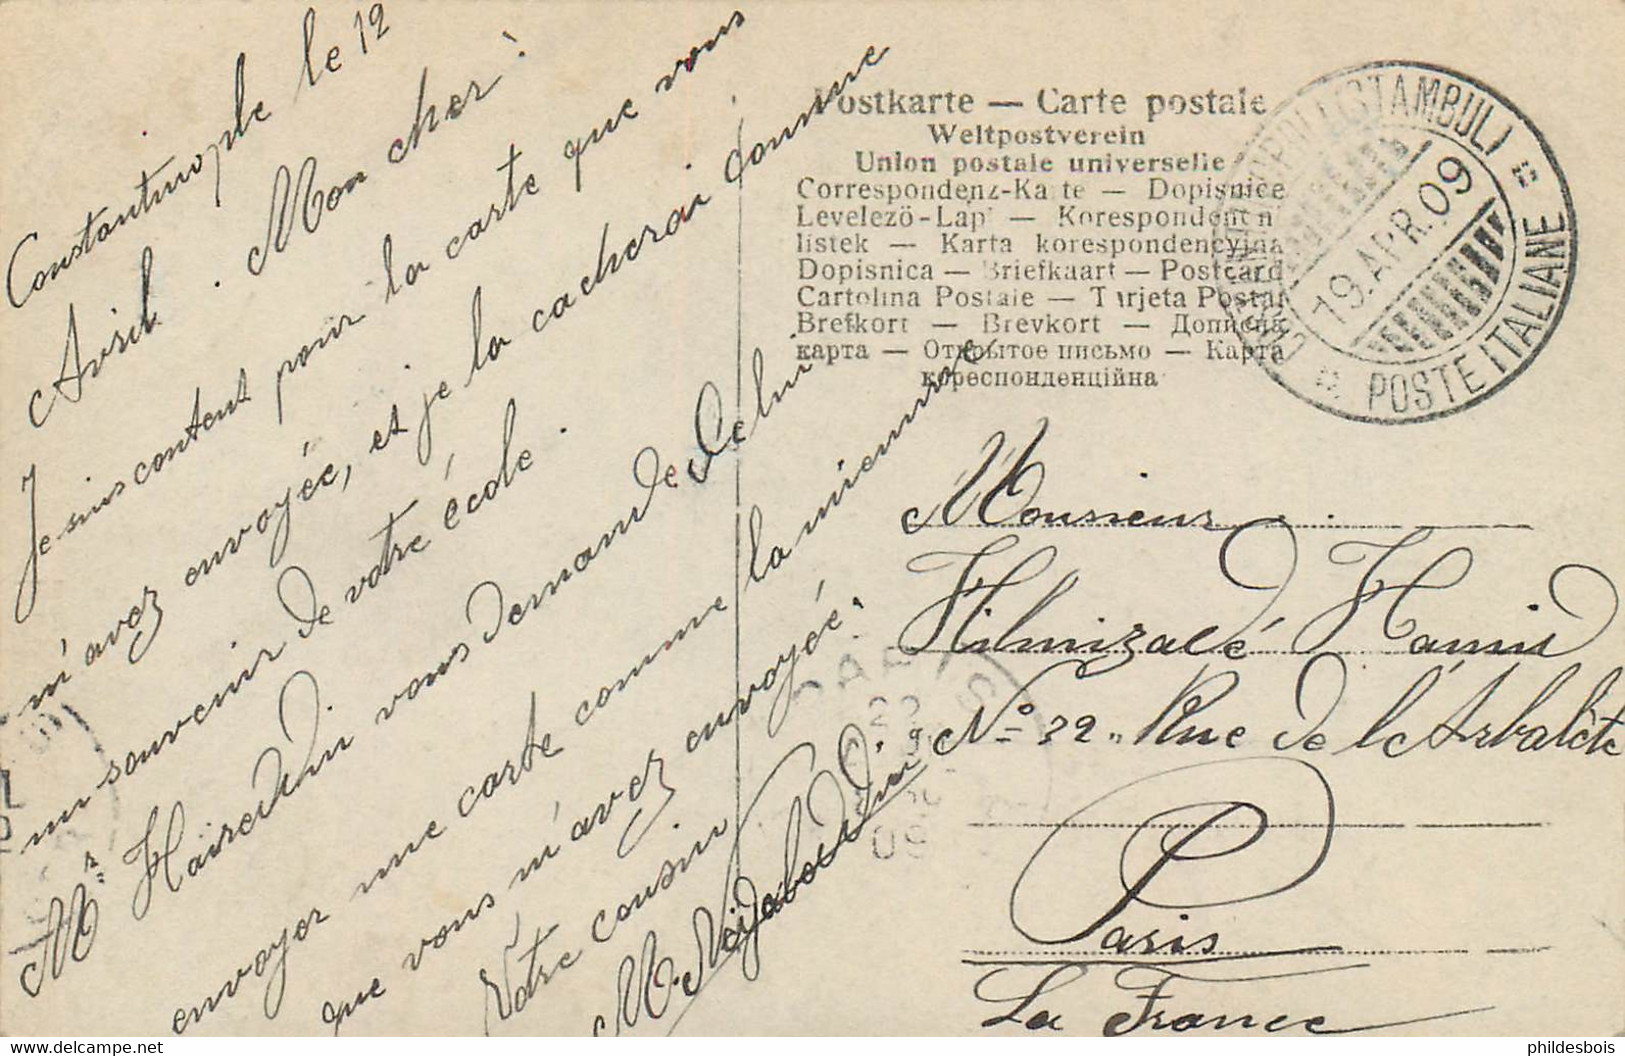 Constantinople le 12
Avril. Mon cher!
Je suis content pour la carte que vous
m'avez envoyée, et je la cacherai comme
un souvenir de votre école.
Mr Haireddin vous demande de lui
envoyer une carte comme la mienne
que vous m'avez envoyée.
Votre cousin
M.
Postkarte — Carte postale
Weltpostverein
Union postale universelle
Correspondenz-Karte — Dopisnice
Levelező-Lap — Korespondenčni
listek — Karta korespondencyjna
Dopisnica — Briefkaart — Postcard
Cartolina Postale — Tarjeta Postal
Brefkort — Brevkort — Дописна
карта — Открытое письмо — Карта
кореспонденційна
(STAMBUL)
19.APR.09
POSTE ITALIANE
Monsieur
Hilmizadé Hamid
No 32 Rue de l'Arbalète
Paris
La France
PARIS
09
phildesbois